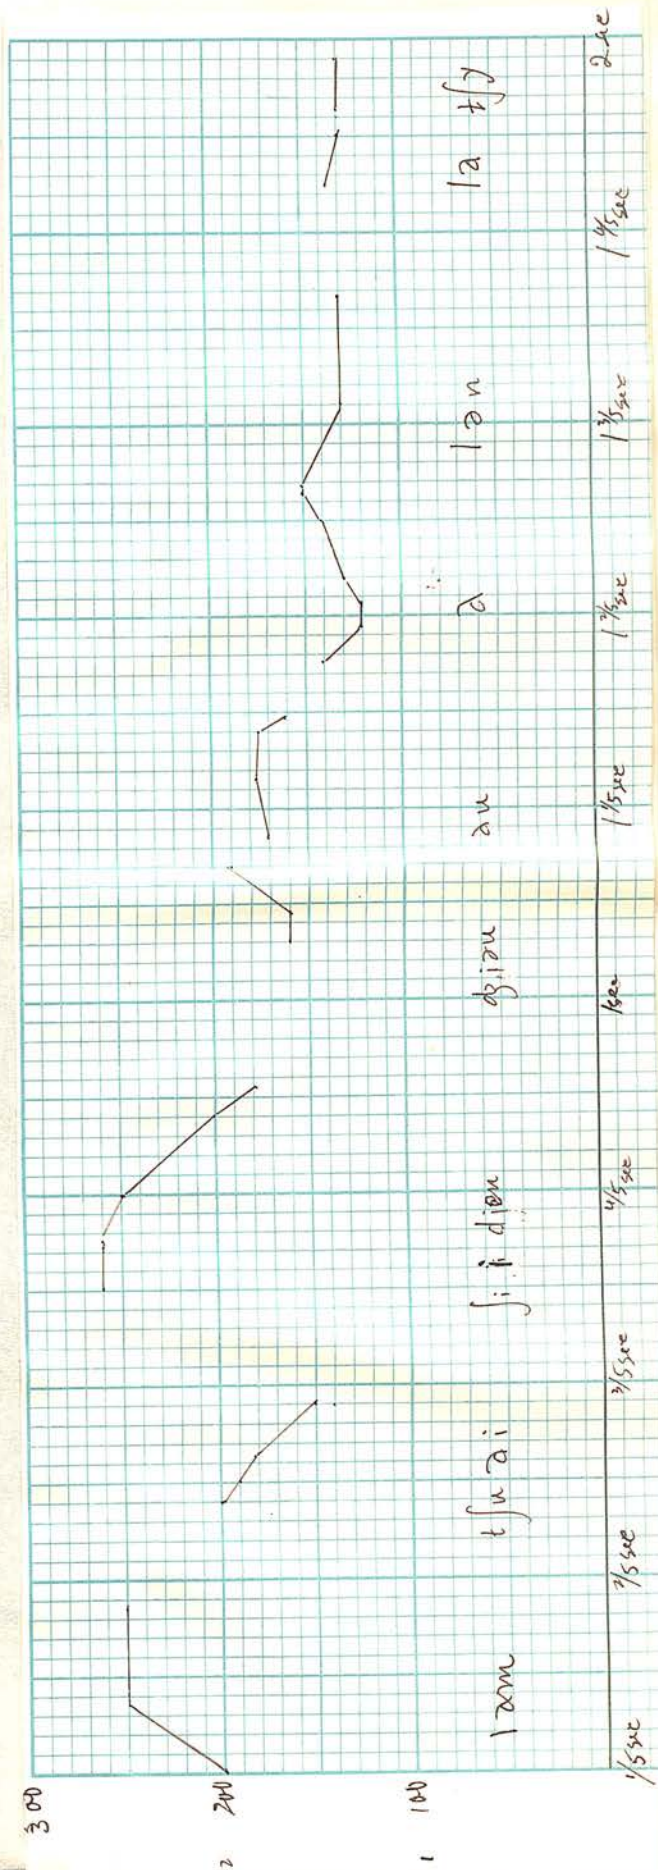 300
200
100
2
1
lam tʃuai ʃi i dien dʒiəu əu ə lən la tʃy
1/5 sec 2/5 sec 3/5 sec 4/5 sec 1 sec 1 1/5 sec 1 2/5 sec 1 3/5 sec 1 4/5 sec 2 sec